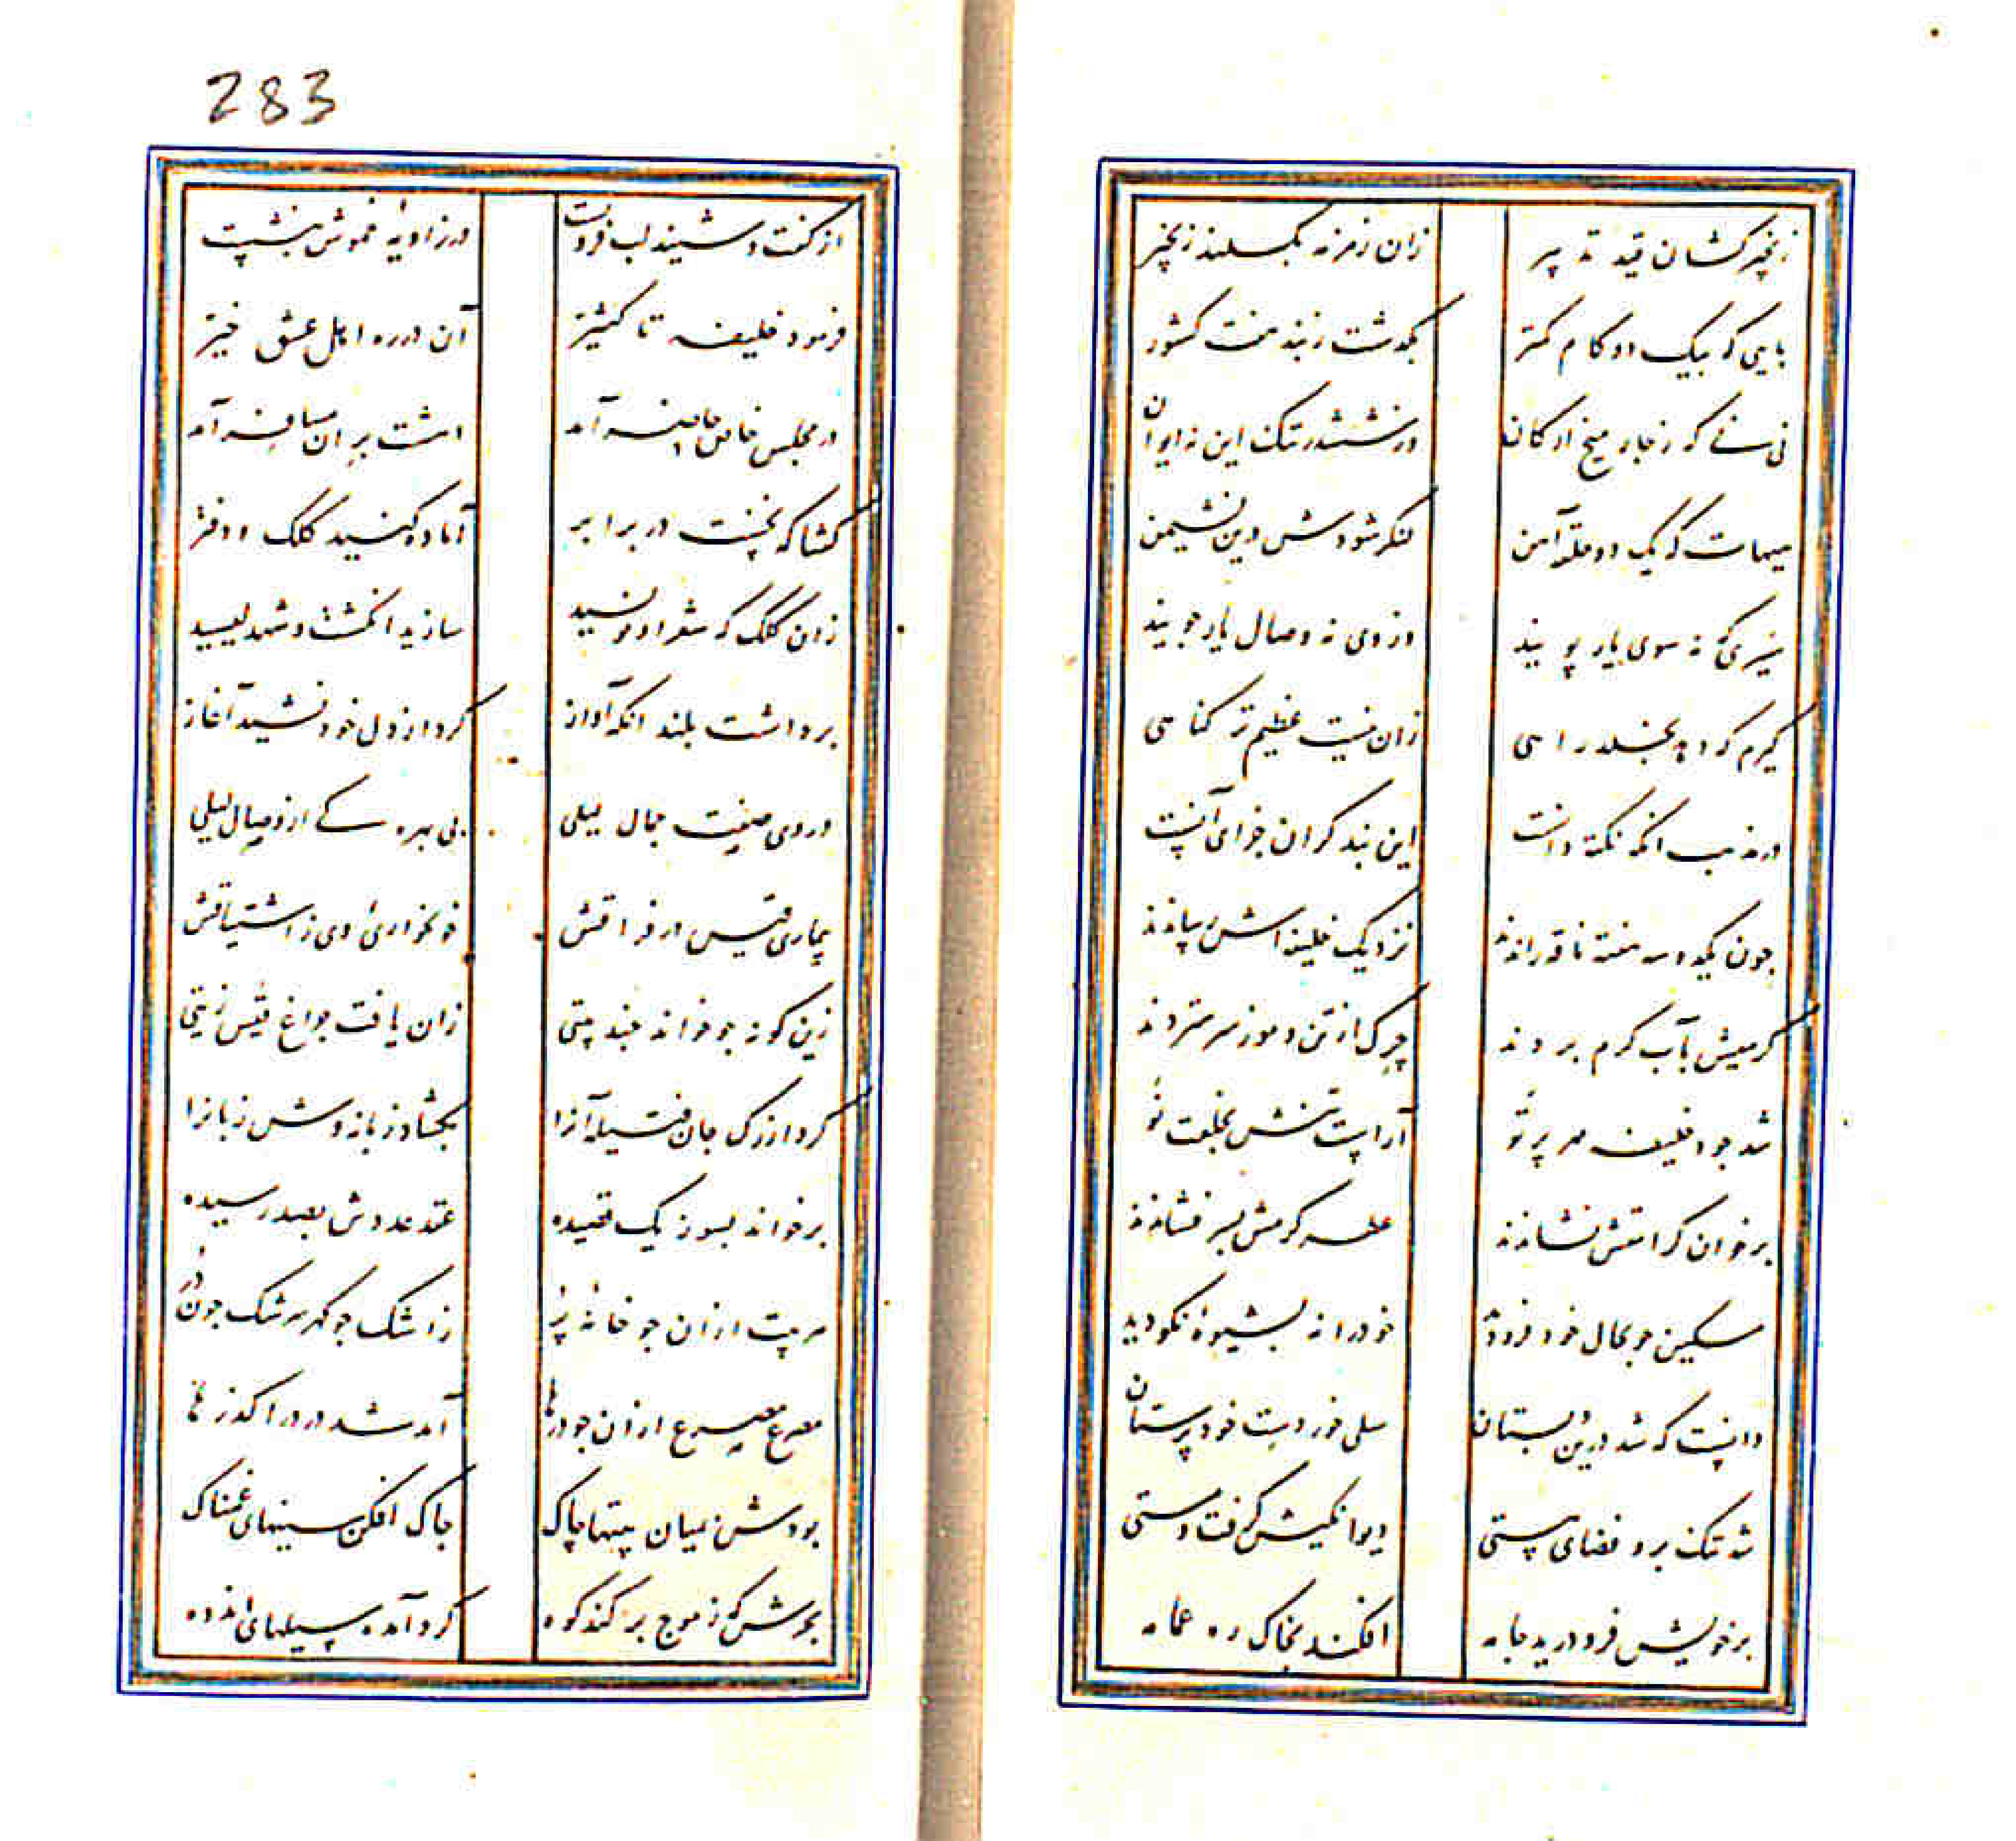 283
زنجیرکشان قید تدبیر زان زمزمه بگسلند زنجیر
پایی که بیک دو کام کمتر بکذشت ز بند هفت کشور
نی نی که ز چار میخ ارکان در ششدر تنک این نه ایوان
هیهات که یک دو حلقه آهن لنکر شودش درین نشیمن
شیری که نه سوی یار پویند دزدی نه وصال یار جویند
کیرم که دهد بخلد راهی زان نیست عظیم تر کناهی
در مذهب آنکه نکته دانست این بند کران جزای آنست
چون یکدوسه هفته ناقه راندند نزدیک خلیفه اش رساندند
کرمیش بآب کرم بردند چرک از تن و مو ز سر ستردند
شد جود خلیفه مهر پرتو آراست تنش بخلعت نو
بر خوان کرامتش نشاندند عطر کرمش بسر فشاندند
مسکین چو بحال خود فرو دید خود را نه بشیوهٔ نکو دید
دانست که شد درین بستان سلی خور دست خودپرستان
شد تنک برو فضای هستی دیوانکیش کرفت دستی
بر خویش فرو درید جامه افکند بخاک ره عمامه
از کفت و شنید لب فروبست در زاویهٔ خموش بنشست
فرمود خلیفه تا کثیر آن در ره اهل عشق خیر
در مجلس خاص حاضر آمد امشب بر آن مسافر آمد
کفتا که بخست در برابر آماده کنید کلک و دفتر
زان کلک که شعر او نویسید سازید انکشت و شهد لیسید
برداشت بلند آنکه آواز کرد از دل خود نشید آغاز
در وی صفت جمال لیلی بی بهرکی از وصال لیلی
بیماری قیس در فراقش خونخواری وی ز اشتیاقش
زین کونه چو خواند چند بیتی زان یافت چراغ قیس زیتی
کرد از رک جان فتیله آنرا بکشاد زبانه وش زبانرا
برخواند بسوز یک قصیده عقد عددش بصد رسیده
هر بیت از آن چو خانهٔ پر ز اشک چو کهر سرشک چون در
مصرع مصرع از آن چو درها آمد شد درد را کذرها
بودش ز میان بیتها چاک چاک افکن سینهای غمناک
بحرش که ز موج برکند کوه کرد آمده سیلهای اندوه